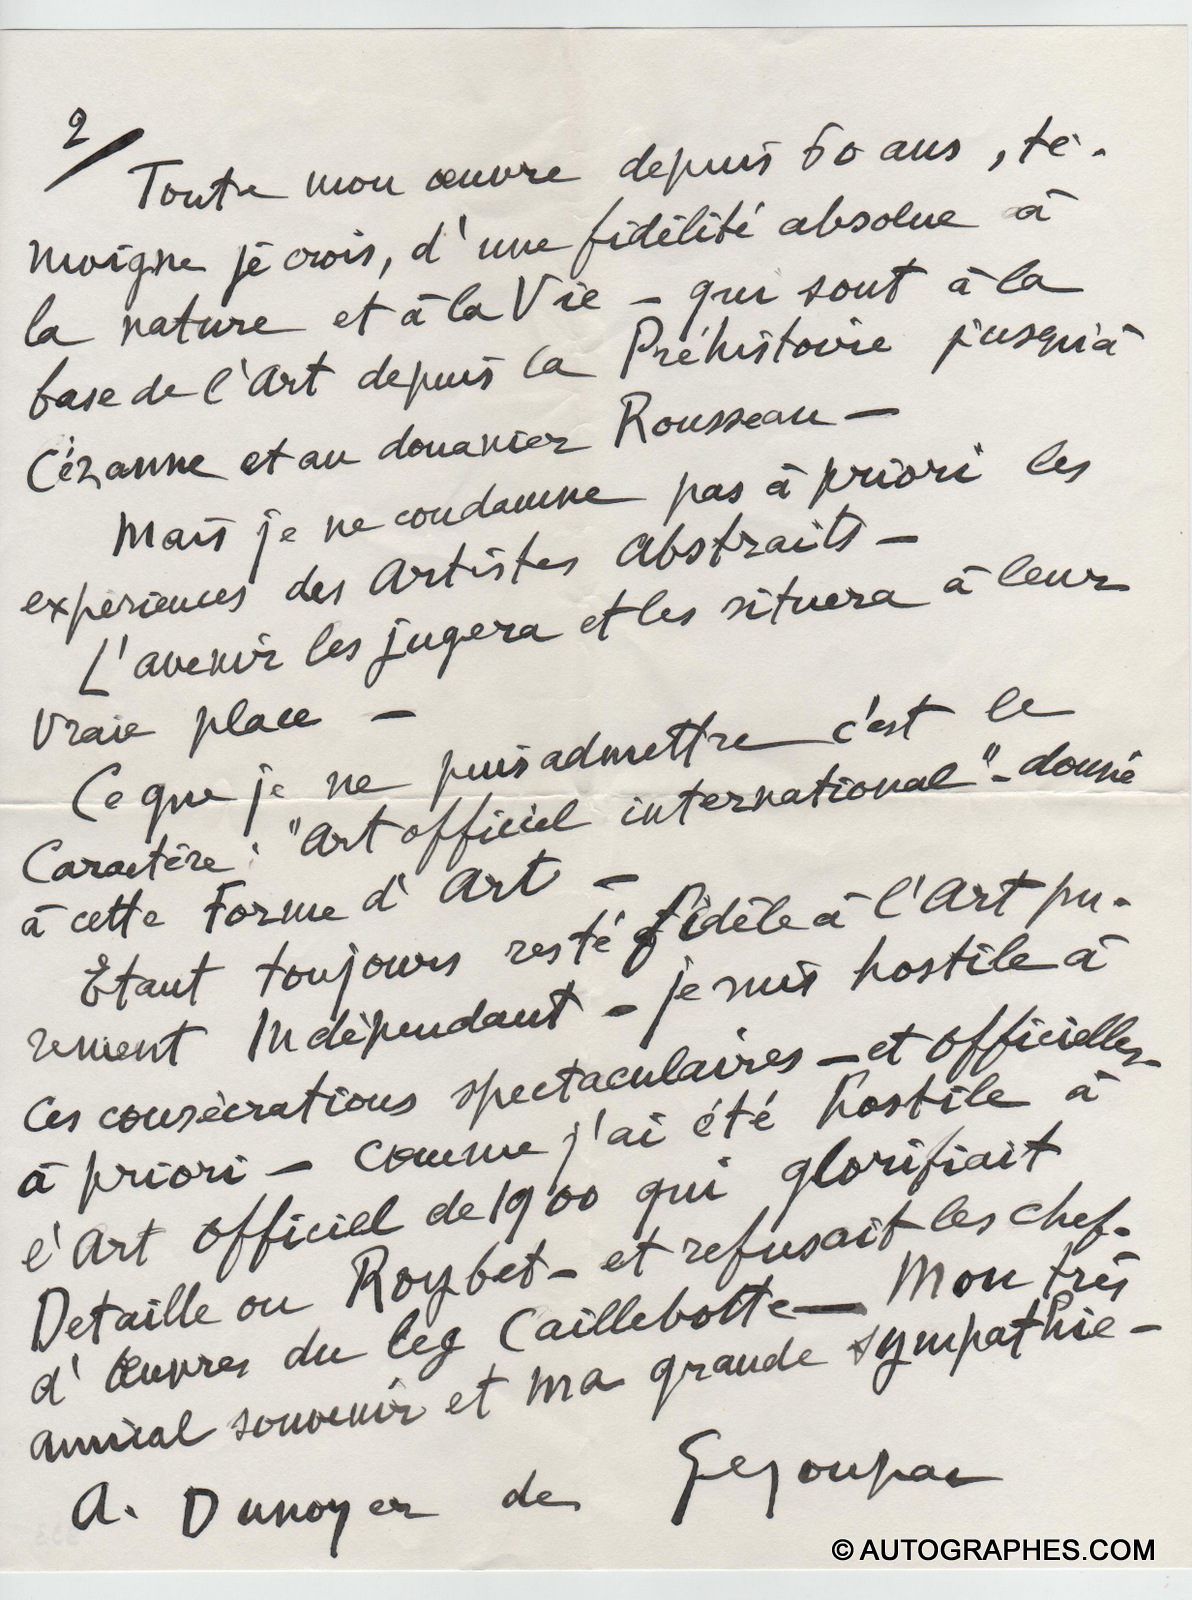 2/
Toute mon œuvre depuis 60 ans, té-
moigne je crois, d'une fidélité absolue à
la nature et à la Vie – qui sont à la
base de l'Art depuis la Préhistoire jusqu'à
Cézanne et au douanier Rousseau –
Mais je ne condamne pas à priori les
expériences des Artistes Abstraits –
L'avenir les jugera et les situera à leur
vraie place –
Ce que je ne puis admettre c'est le
Caractère : "Art officiel international" – donné
à cette Forme d'Art –
Etant toujours resté fidèle à l'Art pu-
rement Indépendant – je suis hostile à
ces consécrations spectaculaires – et officielles
à priori – comme j'ai été hostile à
l'Art officiel de 1900 qui glorifiait
Detaille ou Roybet – et refusait les chef-
d'Œuvres du leg Caillebotte – Mon très
amical souvenir et ma grande sympathie –
A. Dunoyer de Segonzac
© AUTOGRAPHES.COM